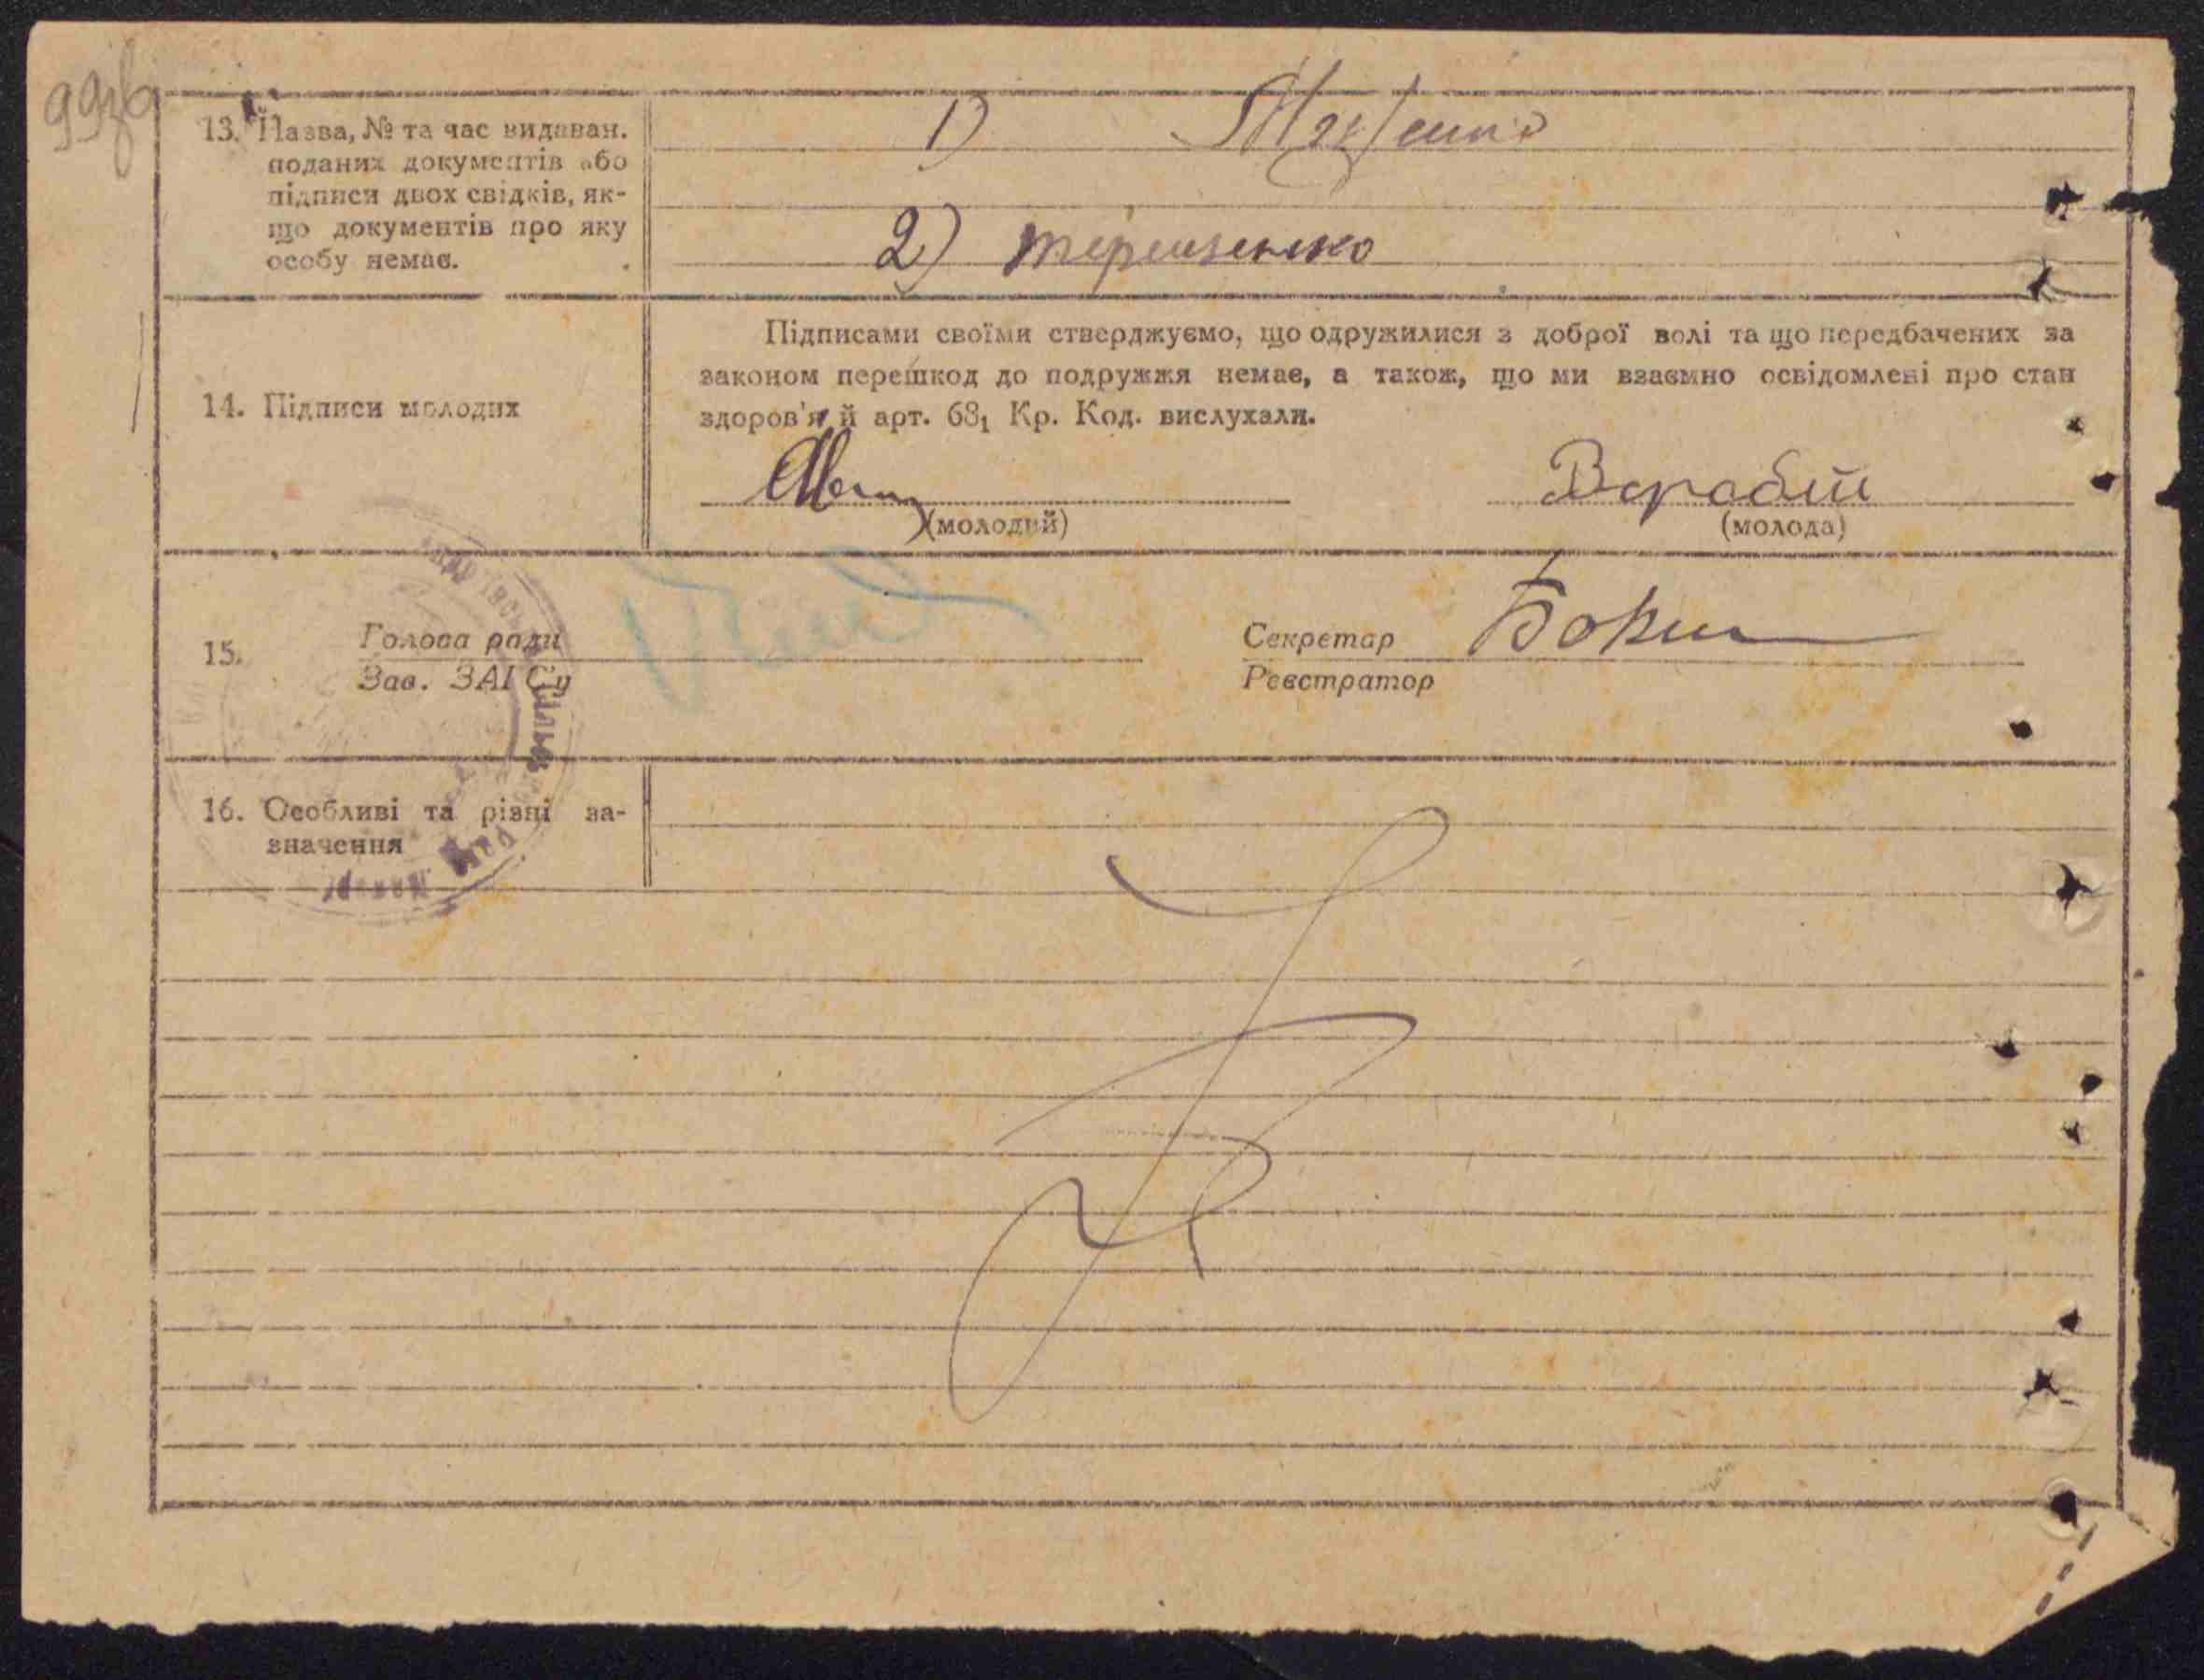 99зв
13. Назва, № та час видаван.
поданих документів або
підписи двох свідків, як-
що документів про яку
особу немає.
1)
2) терещенко
14. Підписи молодих
Підписами своїми стверджуємо, що одружилися з доброї волі та що передбачених за
законом перешкод до подружжя немає, а також, що ми взаємно освідомлені про стан
здоров'я й арт. 68₁ Кр. Код. вислухали.
Воробей
(молодий) (молода)
15.
Голова ради
Зав. ЗАГСу
Секретар
Реєстратор
16. Особливі та різні за-
значення